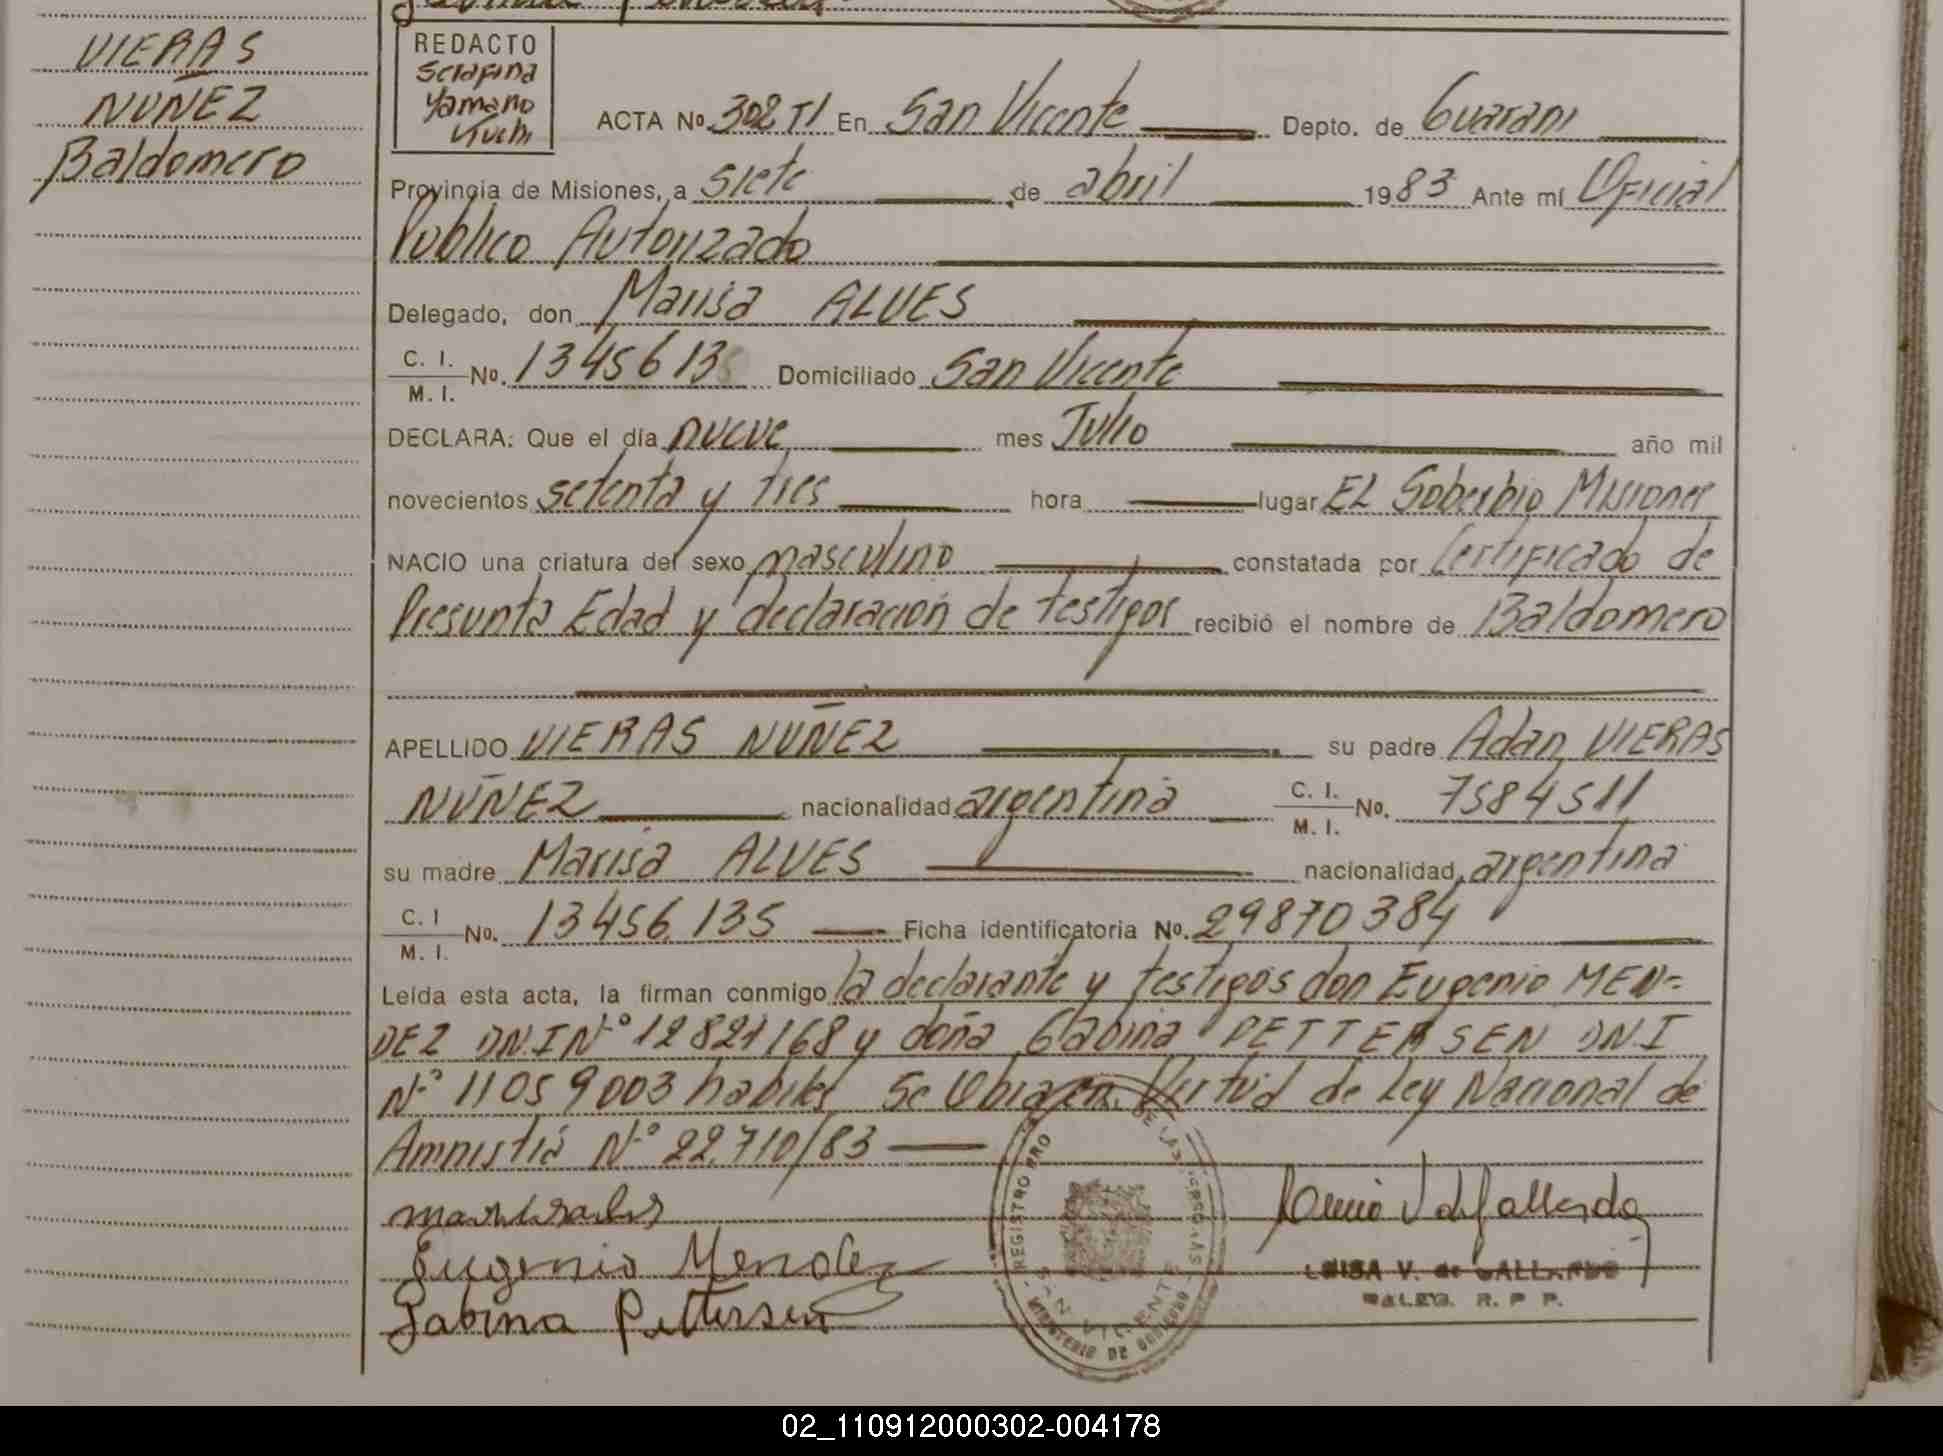 VIERAS
NUNEZ
Baldomero
REDACTO
Serafina
Yamano
ACTA Nº 302 TI En San Vicente Depto. de Guarani
Provincia de Misiones, a siete de abril 1983 Ante mí Oficial
Publico Autorizado
Delegado, don Marisa ALVES
C. I.
M. I.
No. 1345613 Domiciliado San Vicente
DECLARA: Que el día nueve mes Julio año mil
novecientos setenta y tres hora lugar EL Soberbio Misiones
NACIO una criatura del sexo masculino constatada por Certificado de
Presunta Edad y declaración de testigos recibió el nombre de Baldomero
APELLIDO VIERAS NUÑEZ su padre Adan VIERAS
NUÑEZ nacionalidad argentina C. I. M. I. No. 7584511
su madre Marisa ALVES nacionalidad argentina
C. I M. I. No. 13456.135 Ficha identificatoria No. 29870384
Leída esta acta, la firman conmigo la declarante y testigos don Eugenio MEN=
DEZ DN.I Nº 12821168 y doña Gabina PETTERSEN DN.I
Nº 11059003 habiles Se Obra en Virtud de Ley Nacional de
Amnistía Nº 22.710/83
Eugenio Mendez
Gabina Pettersen
REGISTRO PRO DE LAS PERSONAS
SAN VICENTE
MINISTERIO DE GOBIERNO
LUISA V. de GALLARDO
DALEG. R. P P.
02_110912000302-004178